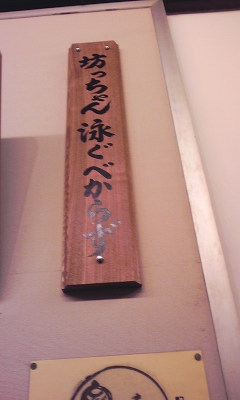 坊っちゃん泳ぐべからず